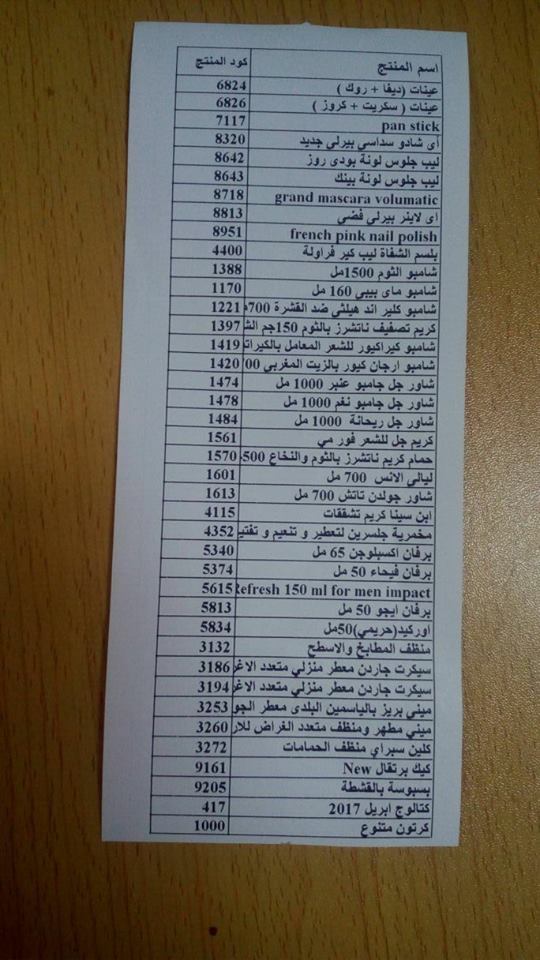 اسم المنتج كود المنتج
عينات (ديفا + روك ) 6824
عينات ( سكريت + كروز ) 6826
pan stick 7117
أى شادو سداسي بيرلي جديد 8320
ليب جلوس لونة بودى روز 8642
ليب جلوس لونة بينك 8643
grand mascara volumatic 8718
اى لاينر بيرلي فضي 8813
french pink nail polish 8951
بلسم الشفاة ليب كير فراولة 4400
شامبو الثوم 1500مل 1388
شامبو ماى بيبي 160 مل 1170
شامبو كلير اند هيلثي ضد القشرة 700م 1221
كريم تصفيف ناتشرز بالثوم 150جم الش 1397
شامبو كيراكيور للشعر المعامل بالكيرات 1419
شامبو ارجان كيور بالزيت المغربي 00' 1420
شاور جل جامبو عنبر 1000 مل 1474
شاور جل جامبو نغم 1000 مل 1478
شاور جل ريحانة 1000 مل 1484
كريم جل للشعر فور مي 1561
حمام كريم ناتشرز بالثوم والنخاع 500 1570
ليالي الانس 700 مل 1601
شاور جولدن تاتش 700 مل 1613
ابن سينا كريم تشققات 4115
مخمرية جلسرين لتعطير و تنعيم و تفتي 4352
برفان اكسبلوجن 65 مل 5340
برفان فيحاء 50 مل 5374
Refresh 150 ml for men impact 5615
برفان ايجو 50 مل 5813
اوركيد(حريمي)50مل 5834
منظف المطابخ والاسطح 3132
سيكرت جاردن معطر منزلي متعدد الاغر 3186
سيكرت جاردن معطر منزلي متعدد الاغر 3194
ميني بريز بالياسمين البلدى معطر الجو 3253
ميني مطهر ومنظف متعدد الغراض للار 3260
كلين سبراي منظف الحمامات 3272
كيك برتقال New 9161
بسبوسة بالقشطة 9205
كتالوج ابريل 2017 417
كرتون متنوع 1000